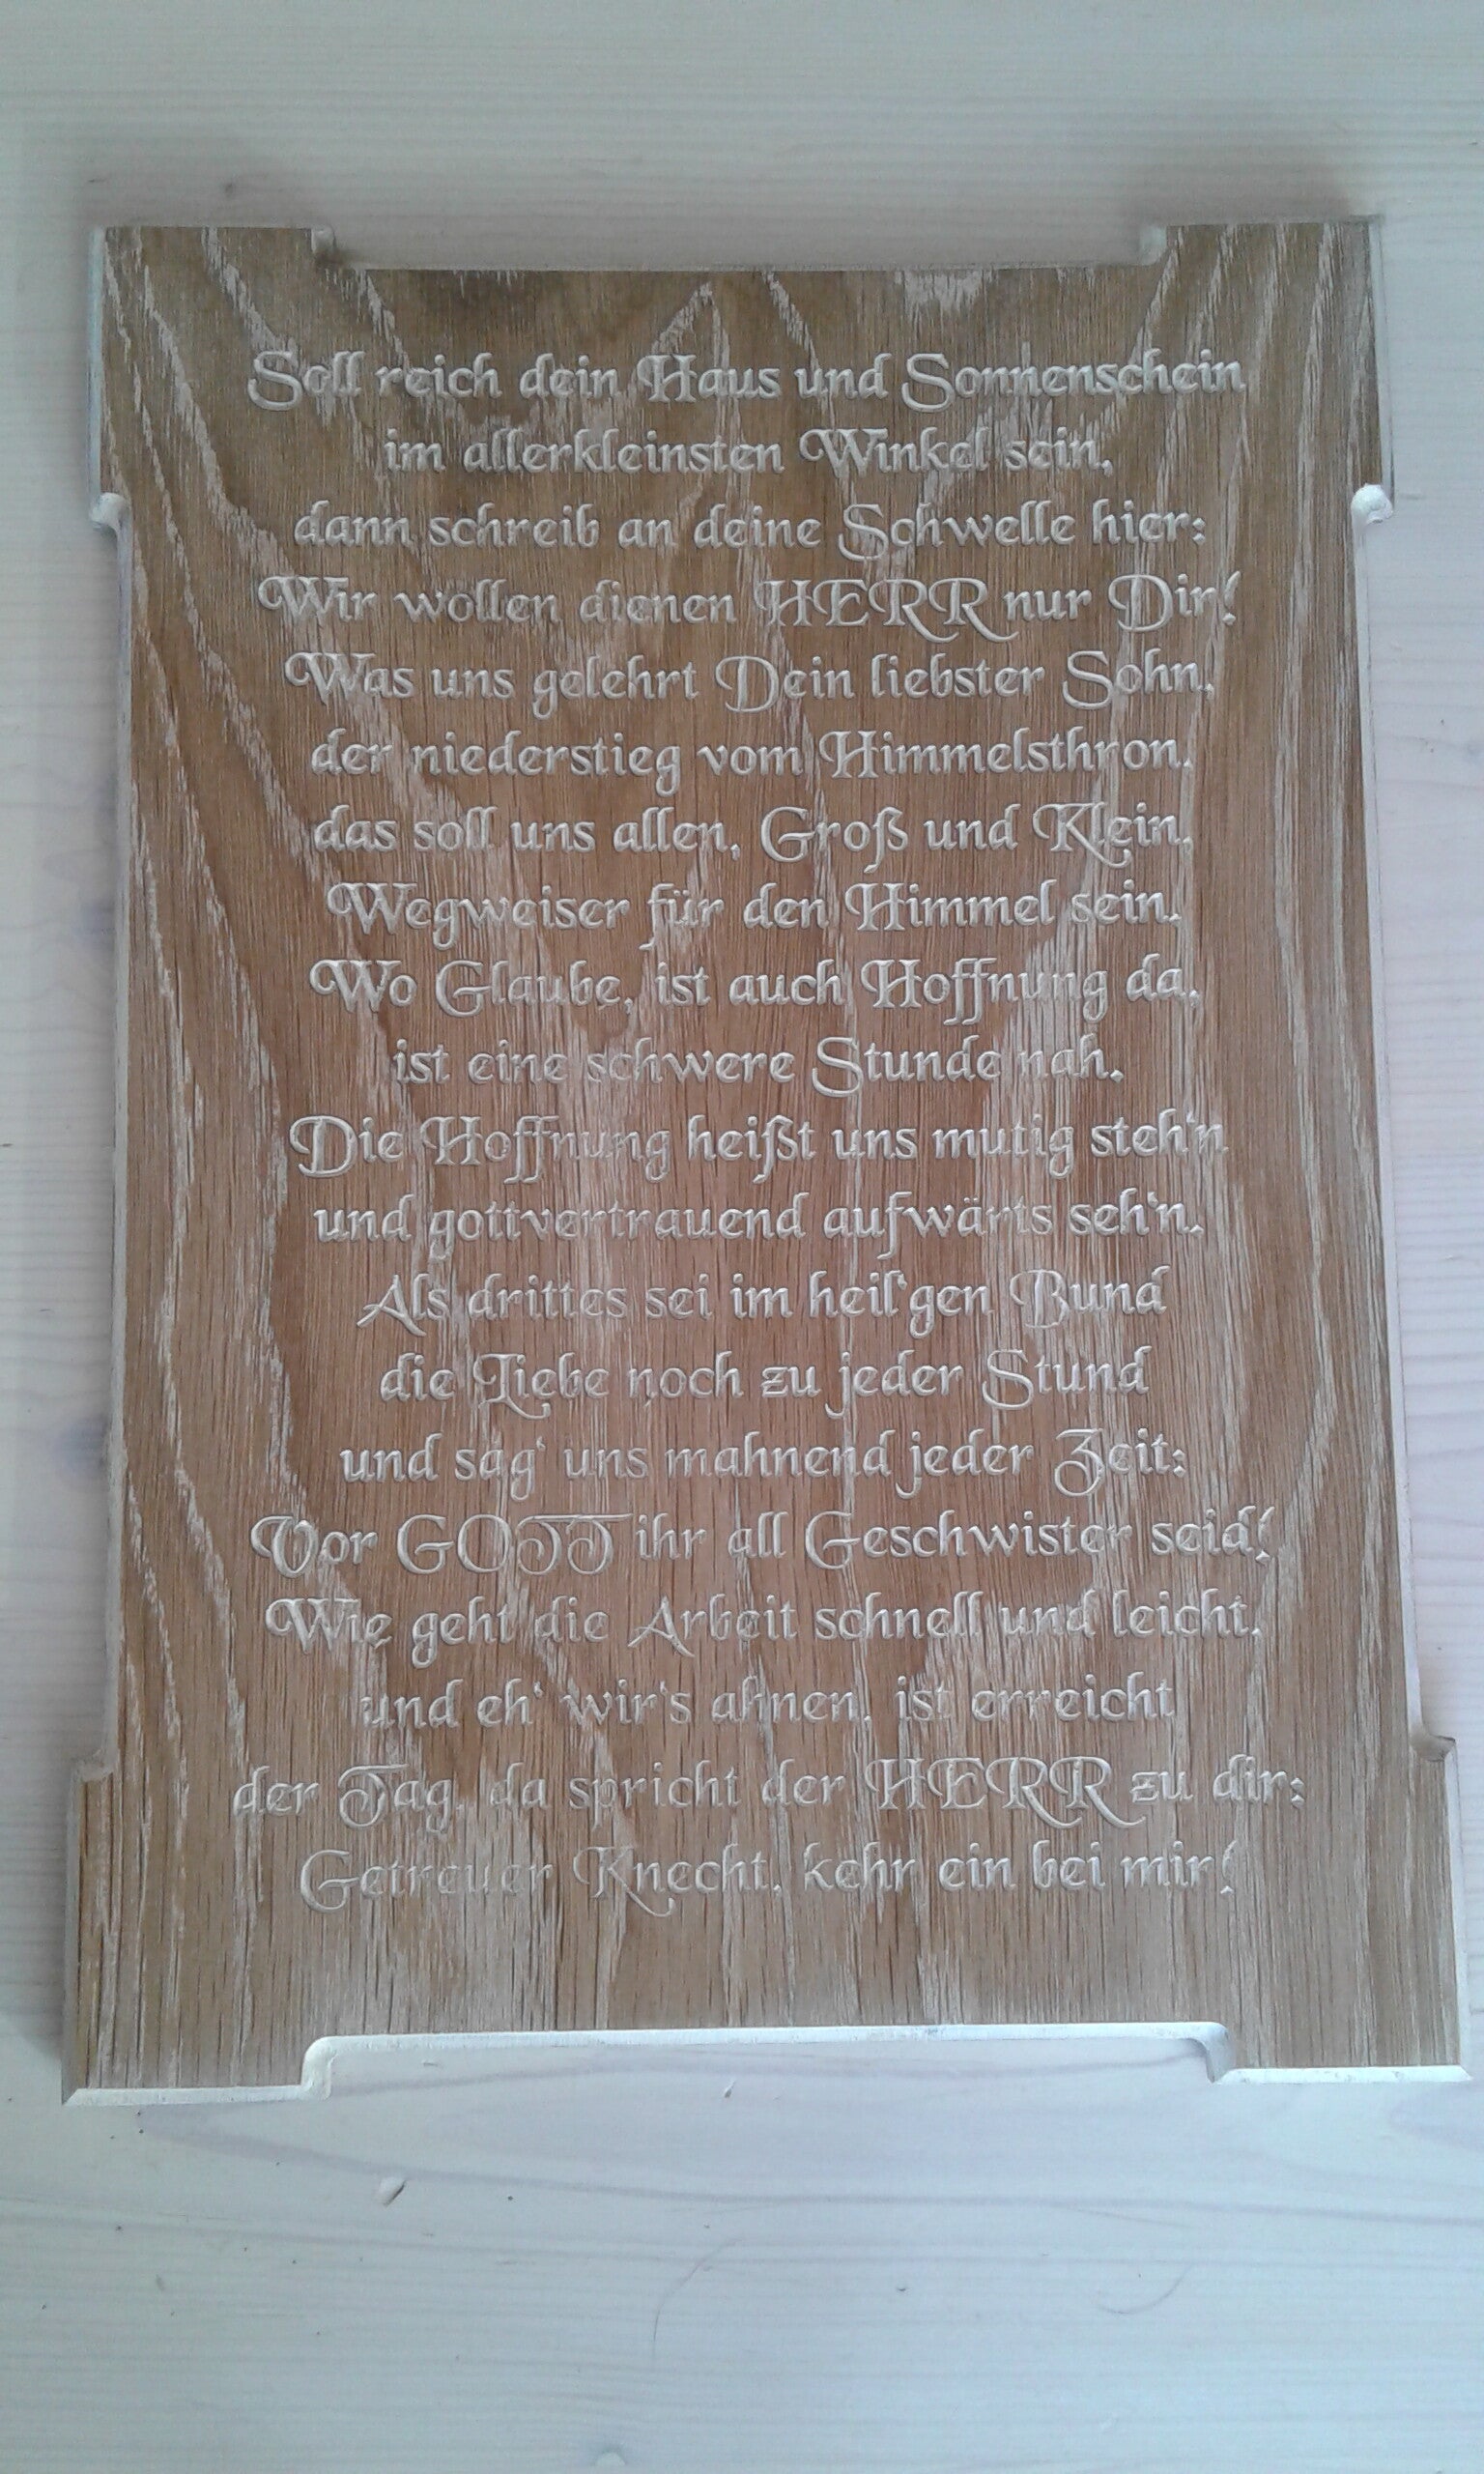 Soll reich dein Haus und Sonnenschein
im allerkleinsten Winkel sein,
dann schreib an deine Schwelle hier:
Wir wollen dienen HERR nur Dir!
Was uns gelehrt Dein liebster Sohn,
der niederstieg vom Himmelsthron,
das soll uns allen, Groß und Klein,
Wegweiser für den Himmel sein.
Wo Glaube, ist auch Hoffnung da,
ist eine schwere Stunde nah.
Die Hoffnung heißt uns mutig steh'n
und gottvertrauend aufwärts seh'n.
Als drittes sei im heil'gen Bund
die Liebe noch zu jeder Stund
und sag' uns mahnend jeder Zeit:
Vor GOTT ihr all Geschwister seid!
Wie geht die Arbeit schnell und leicht,
und eh' wir's ahnen, ist erreicht
der Tag, da spricht der HERR zu dir:
Getreuer Knecht, kehr ein bei mir!